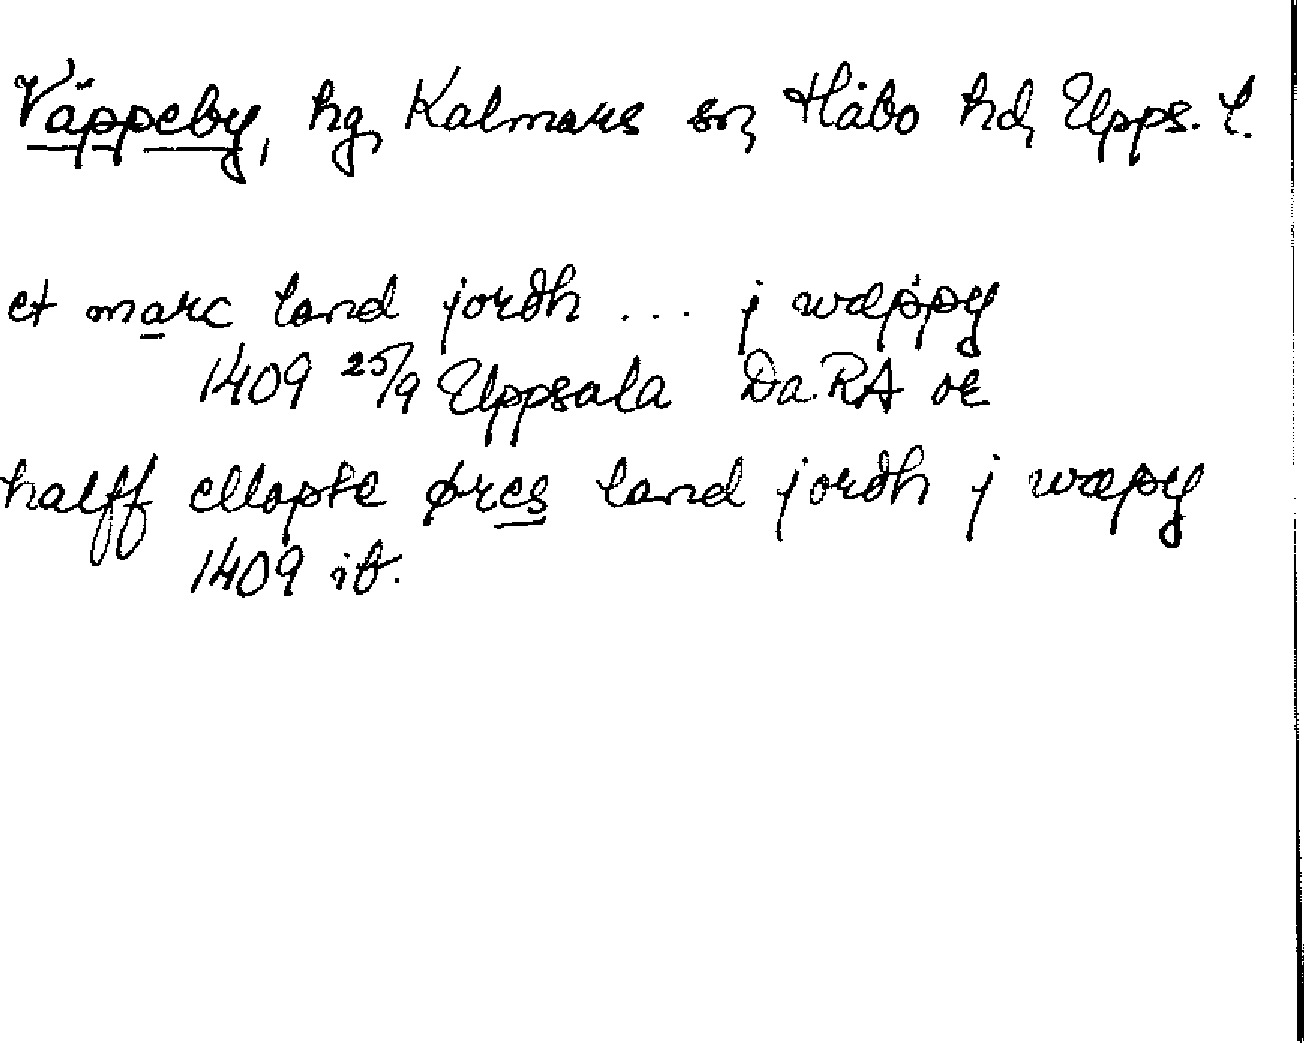 Väppeby, hg, Kalmars sn, Håbo hd, Upps. l.
et marc land jordh ... j wæppy
1409 25/9 Uppsala Da. RA or
halff ellopte øres land jordh j wæpy
1409 ib.